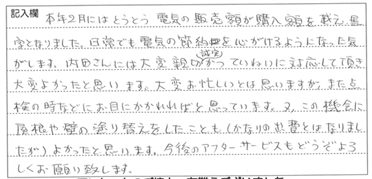 記入欄
本年2月にはとうとう電気の販売額が購入額を越え、黒
字となりました。日常でも電気の節約を心がけるようになった気
がします。内田さんには大変親切(誠実)かつていねいに対応して頂き
大変よかったと思います。大変お忙しいとは思いますが、また点
検の時などにお目にかかれればと思っています。又、この機会に
屋根や壁の塗り替えをしたことも、(かなりの出費とはなりまし
たが)よかったと思います。今後のアフターサービスもどうぞよろ
しくお願い致します。